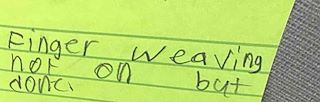 Finger weaving
not on but
done.